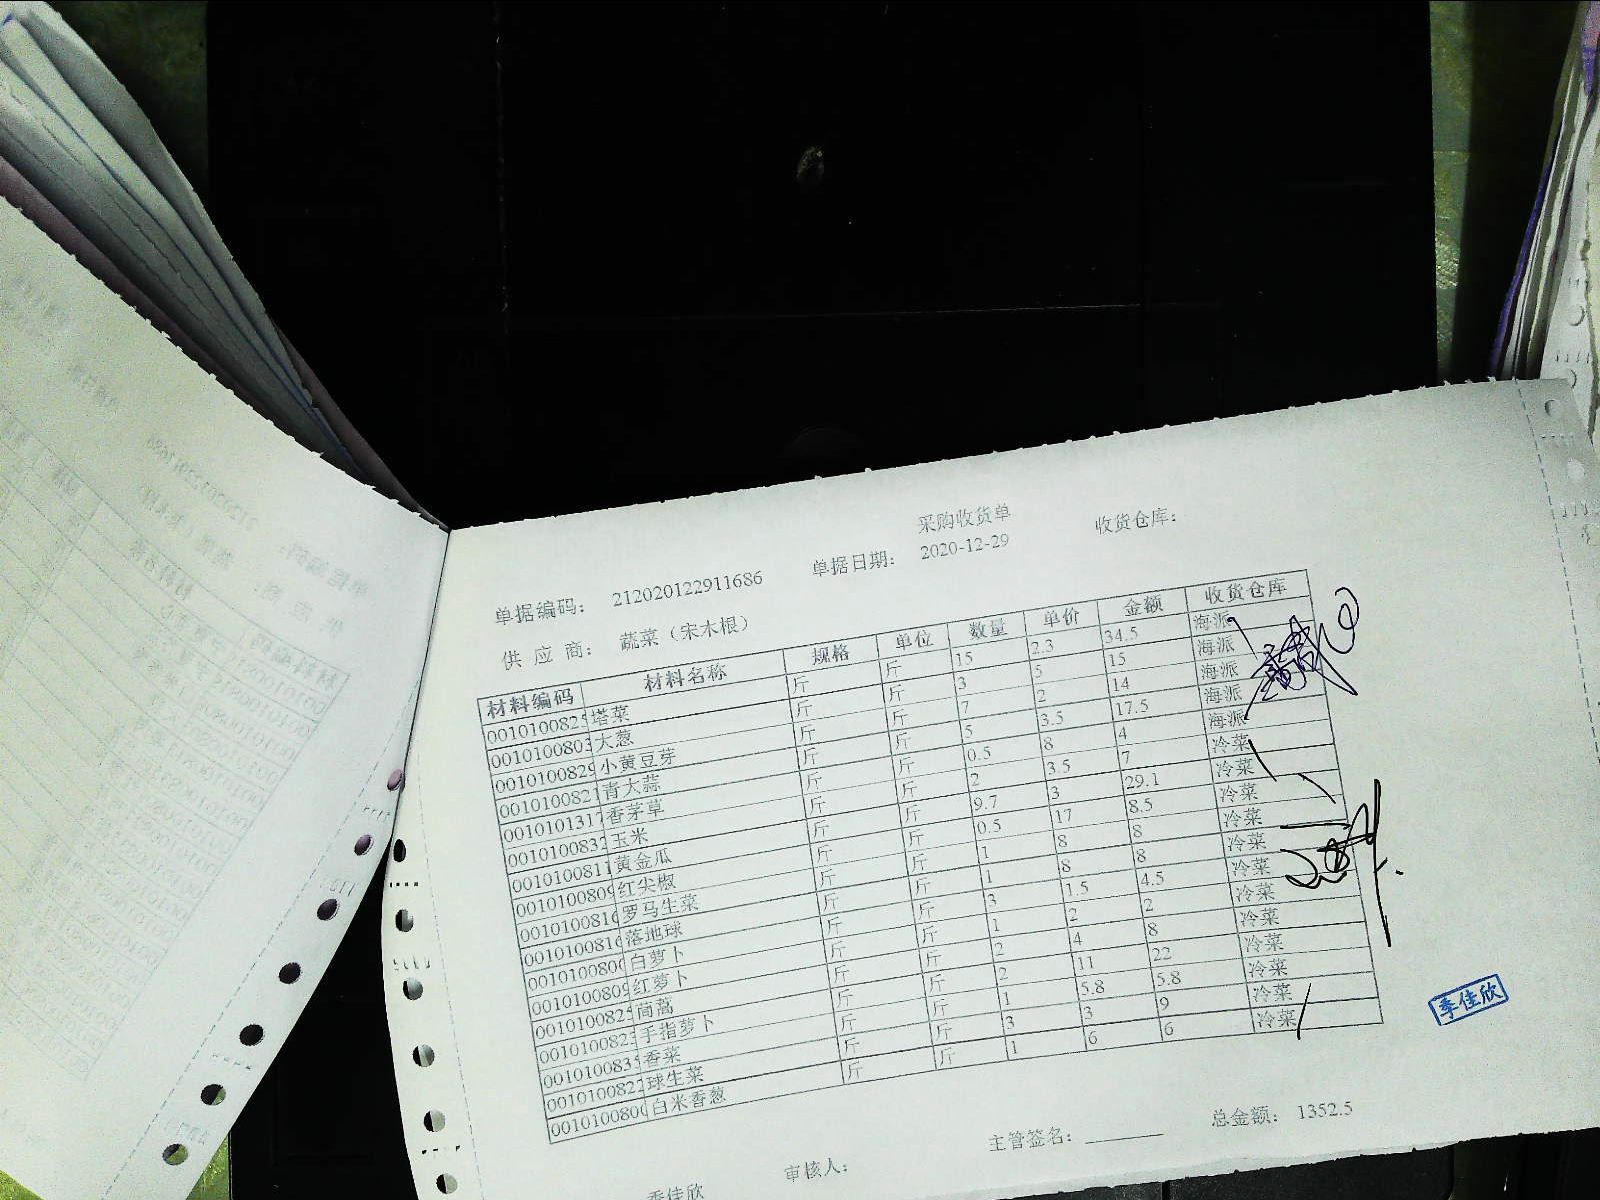 采购收货单
单据编码: 212020122911686 单据日期: 2020-12-29 收货仓库:
供 应 商: 蔬菜（宋木根）
材料编码 材料名称 规格 单位 数量 单价 金额 收货仓库
001010082 塔菜 斤 斤 15 2.3 34.5 海派
001010080 大葱 斤 斤 3 5 15 海派
001010082 小黄豆芽 斤 斤 7 2 14 海派
001010082 青大蒜 斤 斤 5 3.5 17.5 海派
001010131 香茅草 斤 斤 0.5 8 4 海派
001010083 玉米 斤 斤 2 3.5 7 冷菜
001010081 黄金瓜 斤 斤 9.7 3 29.1 冷菜
001010080 红尖椒 斤 斤 0.5 17 8.5 冷菜
001010081 罗马生菜 斤 斤 1 8 8 冷菜
001010081 落地球 斤 斤 1 8 8 冷菜
001010080 白萝卜 斤 斤 3 1.5 4.5 冷菜
001010080 红萝卜 斤 斤 1 2 2 冷菜
001010082 茼蒿 斤 斤 2 4 8 冷菜
001010082 手指萝卜 斤 斤 2 11 22 冷菜
001010083 香菜 斤 斤 1 5.8 5.8 冷菜
001010082 球生菜 斤 斤 3 3 9 冷菜
001010080 白米香葱 斤 斤 1 6 6 冷菜
季佳欣
总金额: 1352.5
主管签名:
审核人:
季佳欣